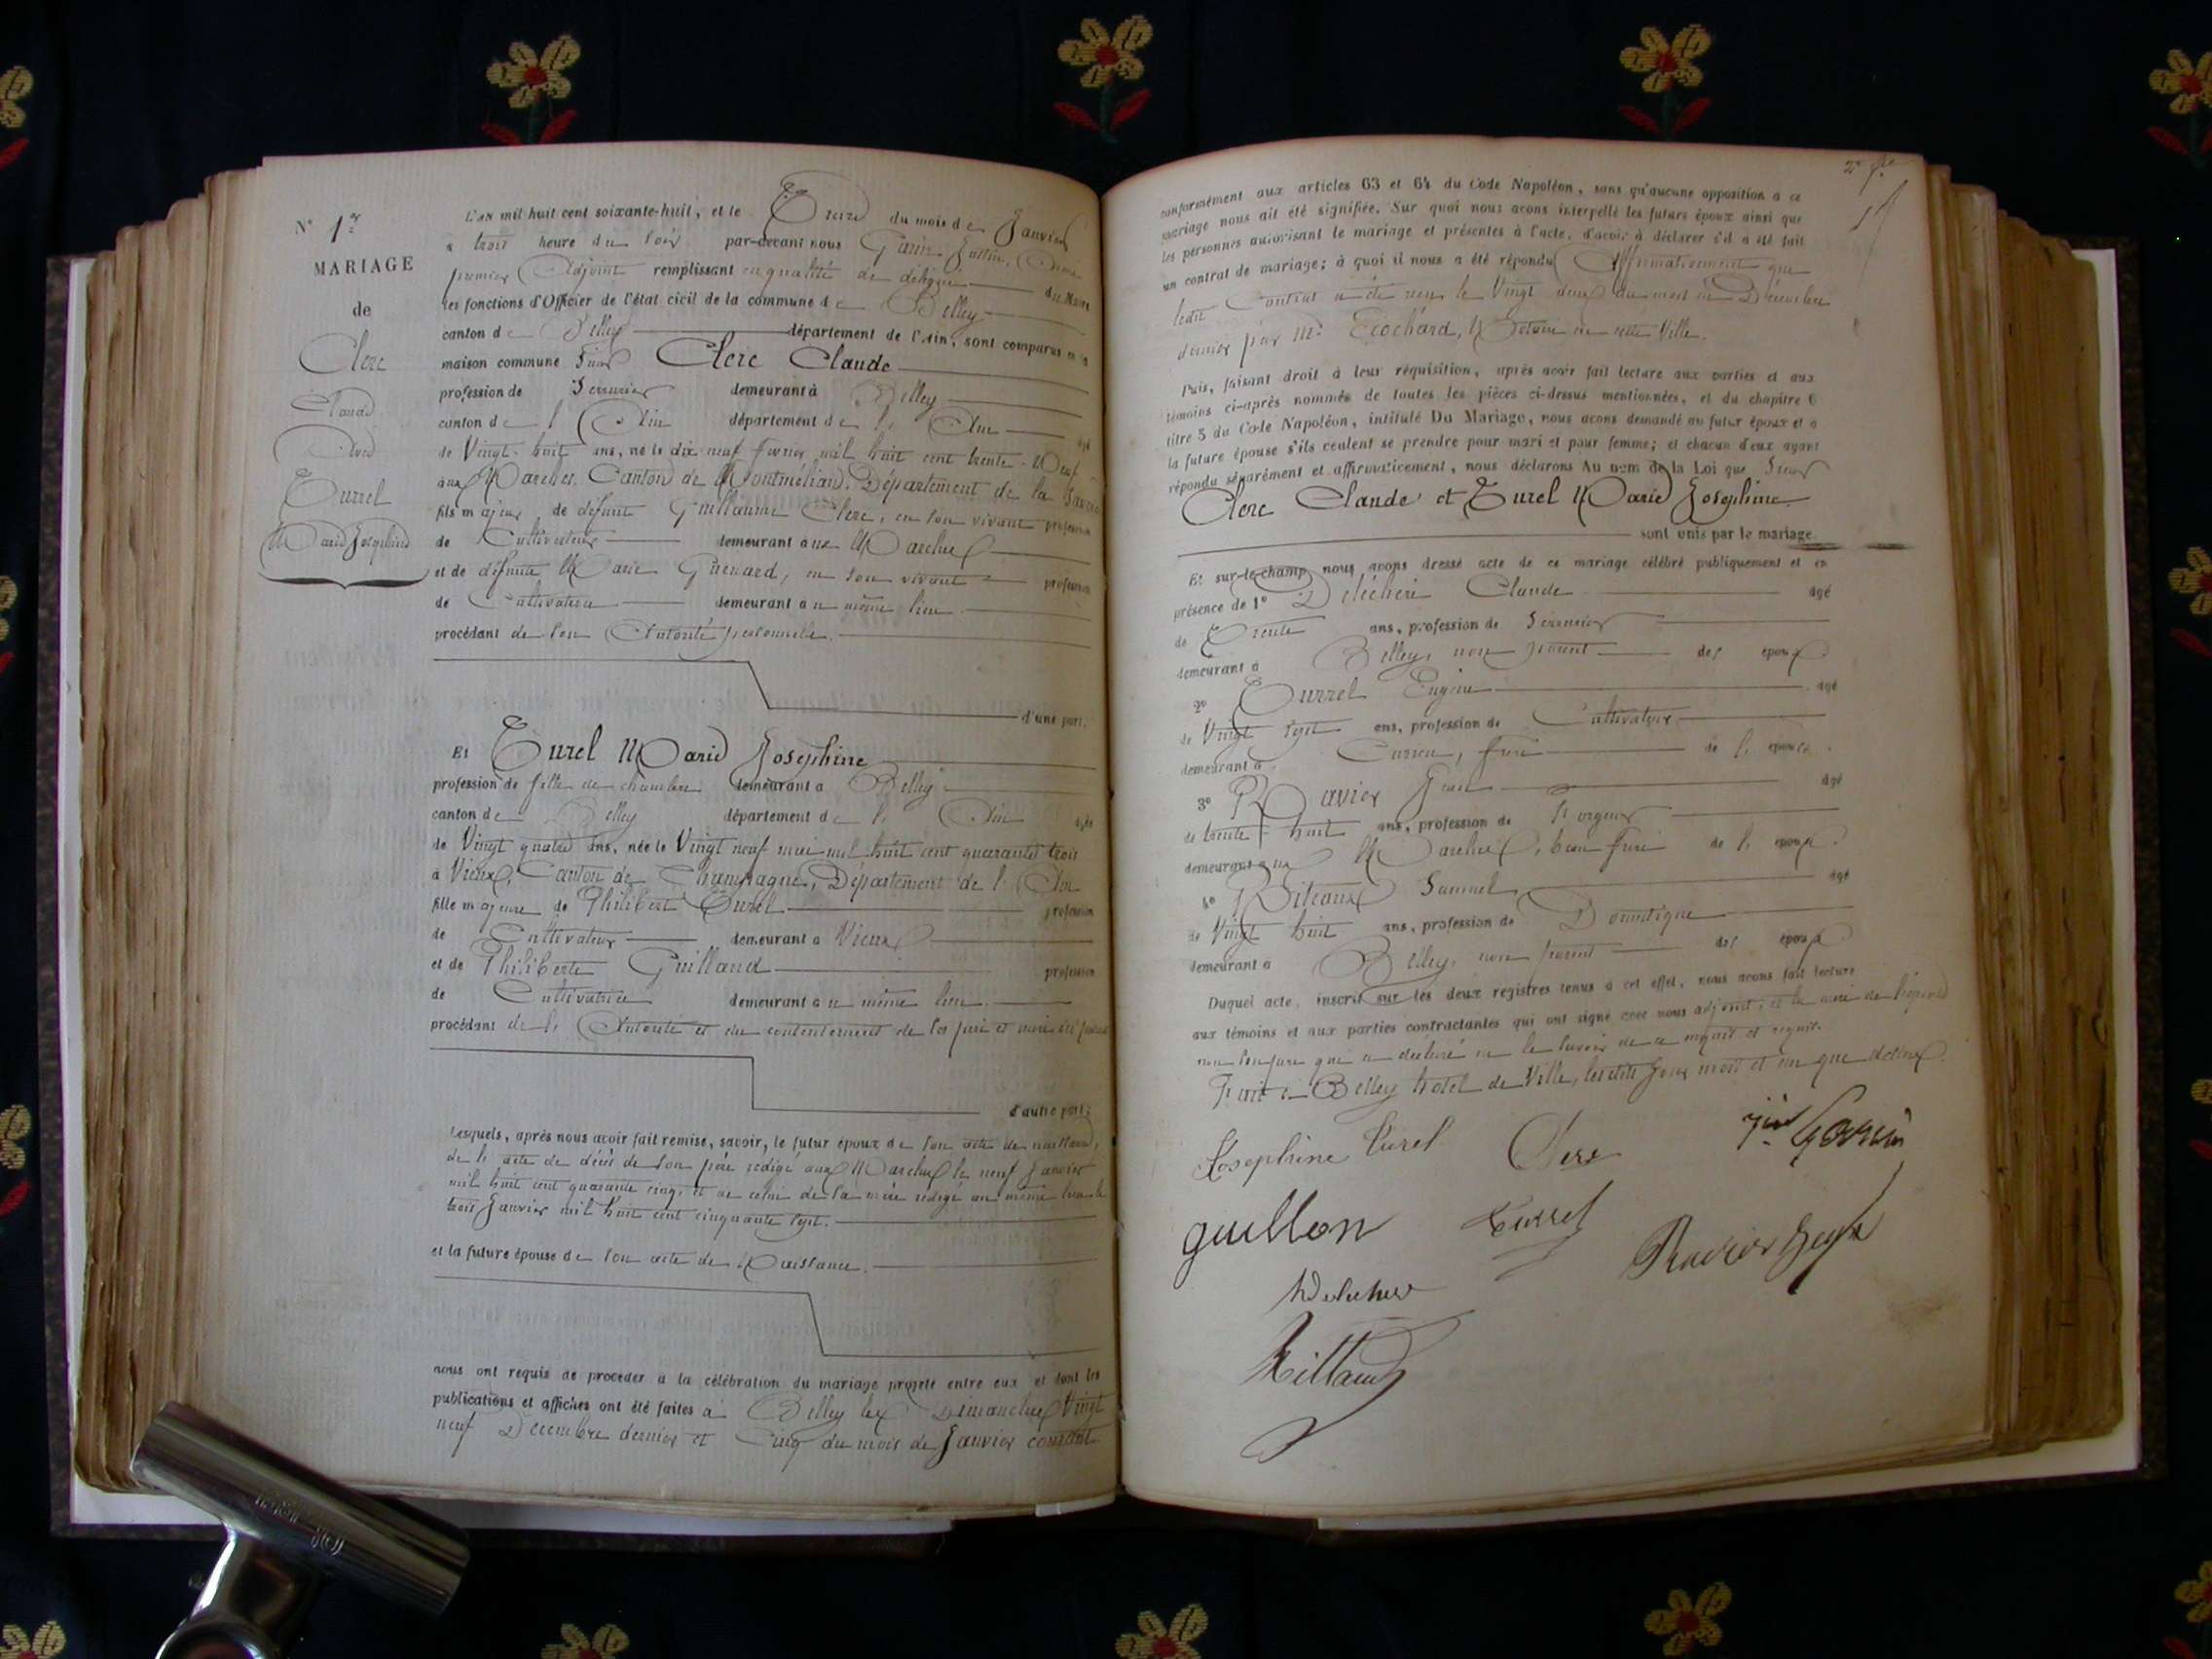 N° 1er
MARIAGE
de
Clerc
Claude
Avec
Turrel
Marie Joséphine
L'an mil huit cent soixante-huit, et le Treize du mois de Janvier
à trois heure du soir par-devant nous Garin
premier Adjoint remplissant en qualité de délégué du Maire
les fonctions d'Officier de l'état civil de la commune de Belley
canton de Belley département de l'Ain, sont comparus en la
maison commune Sieur Clerc Claude
profession de Serrurier demeurant à Belley
canton de l'Ain département de l'Ain âgé
de Vingt-huit ans, né le dix neuf février mil huit cent trente-Neuf
aux Marches, Canton de Montmélian, Département de la Savoie
fils majeur de défunt Guillaume Clerc, en son vivant profession
de Cultivateur demeurant aux Marches
et de défunte Marie Guenard, en son vivant profession
de Cultivatrice demeurant au même lieu
procédant de son Autorité personnelle.
d'une part.
Et Turel Marie Josephine
profession de fille de chambre demeurant à Belley
canton de Belley département de l'Ain âgée
de Vingt quatre ans, née le Vingt neuf mai mil huit cent quarante trois
à Vieux, Canton de Champagne, Département de l'Ain
fille majeure de Philibert Turel profession
de Cultivateur demeurant à Vieux
et de Philiberte Guilland profession
de Cultivatrice demeurant au même lieu
procédant de l'Autorité et du consentement de ses père et mère ici présents
d'autre part;
Lesquels, après nous avoir fait remise, savoir, le futur époux de son acte de naissance,
de l'acte de décès de son père rédigé aux Marches le neuf Janvier
mil huit cent quarante cinq, et de celui de sa mère rédigé au même lieu le
trois Janvier mil huit cent cinquante sept.
et la future épouse de son acte de Naissance.
nous ont requis de procéder à la célébration du mariage projeté entre eux et dont les
publications et affiches ont été faites à Belley les Dimanches Vingt
neuf Décembre dernier et Cinq du mois de Janvier courant
conformément aux articles 63 et 64 du Code Napoléon, sans qu'aucune opposition à ce
mariage nous ait été signifiée. Sur quoi nous avons interpellé les futurs époux ainsi que
les personnes autorisant le mariage et présentes à l'acte, d'avoir à déclarer s'il a été fait
un contrat de mariage; à quoi il nous a été répondu Affirmativement que
ledit Contrat a été reçu le Vingt deux du mois de Décembre
dernier par Me Ecochard, Notaire en cette Ville.
Puis, faisant droit à leur réquisition, après avoir fait lecture aux parties et aux
témoins ci-après nommés de toutes les pièces ci-dessus mentionnées, et du chapitre 6
titre 5 du Code Napoléon, intitulé Du Mariage, nous avons demandé au futur époux et à
la future épouse s'ils veulent se prendre pour mari et pour femme; et chacun d'eux ayant
répondu séparément et affirmativement, nous déclarons Au nom de la Loi que Sieur
Clerc Claude et Turel Marie Josephine
sont unis par le mariage
Et sur-le-champ nous avons dressé acte de ce mariage célébré publiquement et en
présence de 1° Claude âgé
de Trente ans, profession de Serrurier
demeurant à Belley, non parent des époux
2° Turrel Eugène âgé
de Vingt sept ans, profession de Cultivateur
demeurant à frère de l'épouse
3° Ravier Jean âgé
de trente-huit ans, profession de Forgeur
demeurant aux Marches, beau frère de l'époux
4° Samuel âgé
de Vingt huit ans, profession de Domestique
demeurant à Belley, non parent des époux
Duquel acte, inscrit sur les deux registres tenus à cet effet, nous avons fait lecture
aux témoins et aux parties contractantes qui ont signé avec nous adjoint, et la mère de l'épouse
non son père qui a déclaré ne le savoir de ce enquis et requis.
Fait à Belley hotel de Ville, lesdits jour mois et an que dessus.
Josephine Turel Clerc Garin
guillon Turrel
Ravier